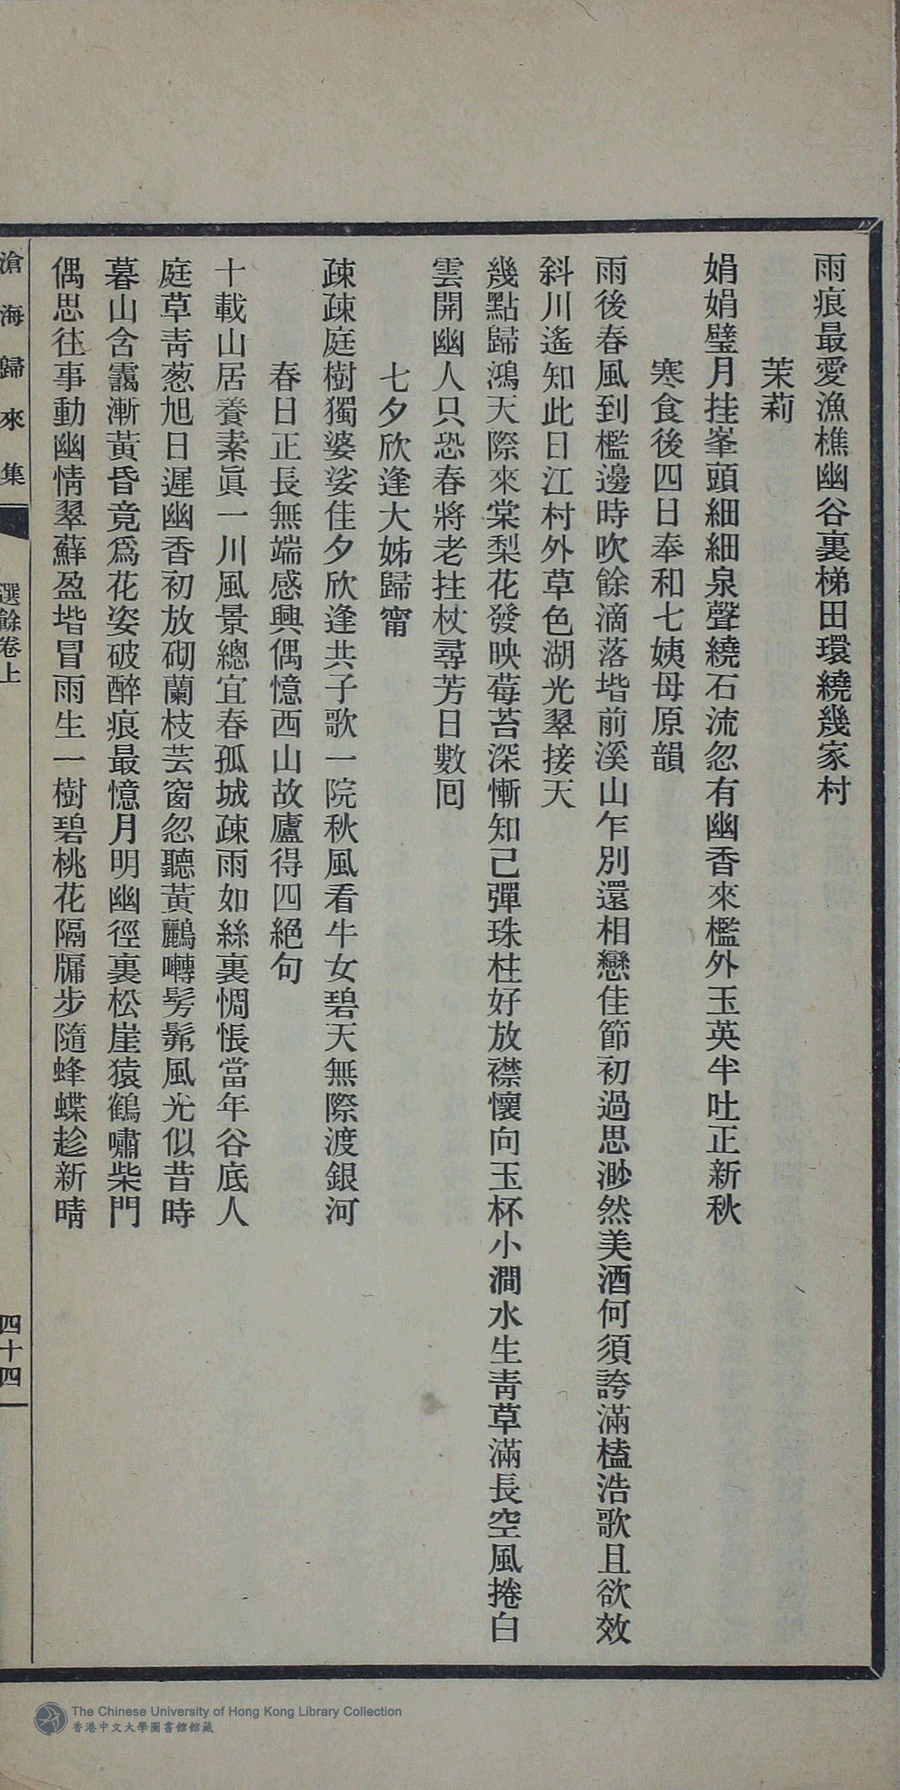 雨痕最愛漁樵幽谷裏梯田環繞幾家村
茉莉
娟娟璧月挂峯頭細細泉聲繞石流忽有幽香來檻外玉英半吐正新秋
寒食後四日奉和七姨母原韻
雨後春風到檻邊時吹餘滴落堦前溪山乍別還相戀佳節初過思渺然美酒何須誇滿榼浩歌且欲效
斜川遙知此日江村外草色湖光翠接天
幾點歸鴻天際來棠梨花發映莓苔深慚知己彈珠柱好放襟懷向玉杯小澗水生靑草滿長空風捲白
雲開幽人只恐春將老拄杖尋芳日數囘
七夕欣逢大姊歸甯
疎疎庭樹獨婆娑佳夕欣逢共子歌一院秋風看牛女碧天無際渡銀河
春日正長無端感興偶憶西山故廬得四絕句
十載山居養素眞一川風景總宜春孤城疎雨如絲裏惆悵當年谷底人
庭草靑葱旭日遲幽香初放砌蘭枝芸窗忽聽黃鸝囀髣髴風光似昔時
暮山含靄漸黃昏竟爲花姿破醉痕最憶月明幽徑裏松崖猿鶴嘯柴門
偶思往事動幽情翠蘚盈堦冒雨生一樹碧桃花隔牖步隨蜂蝶趁新晴
滄海歸來集
選餘卷上
四十四
The Chinese University of Hong Kong Library Collection
香港中文大學圖書館館藏